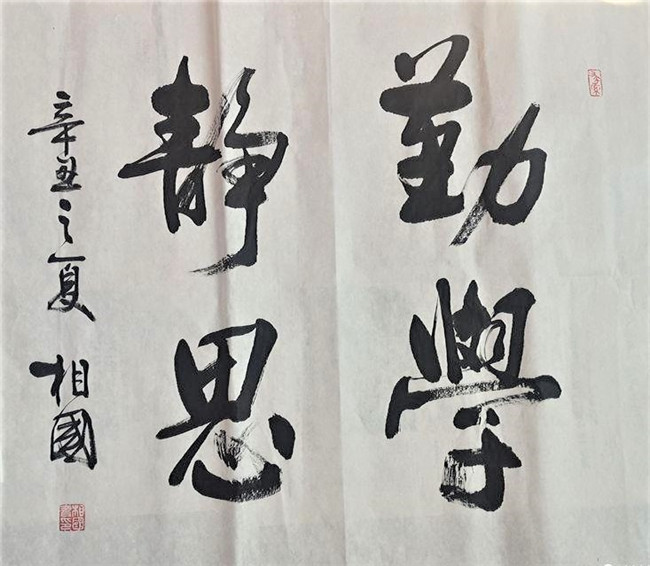 勤學
静思
辛丑之夏
相國